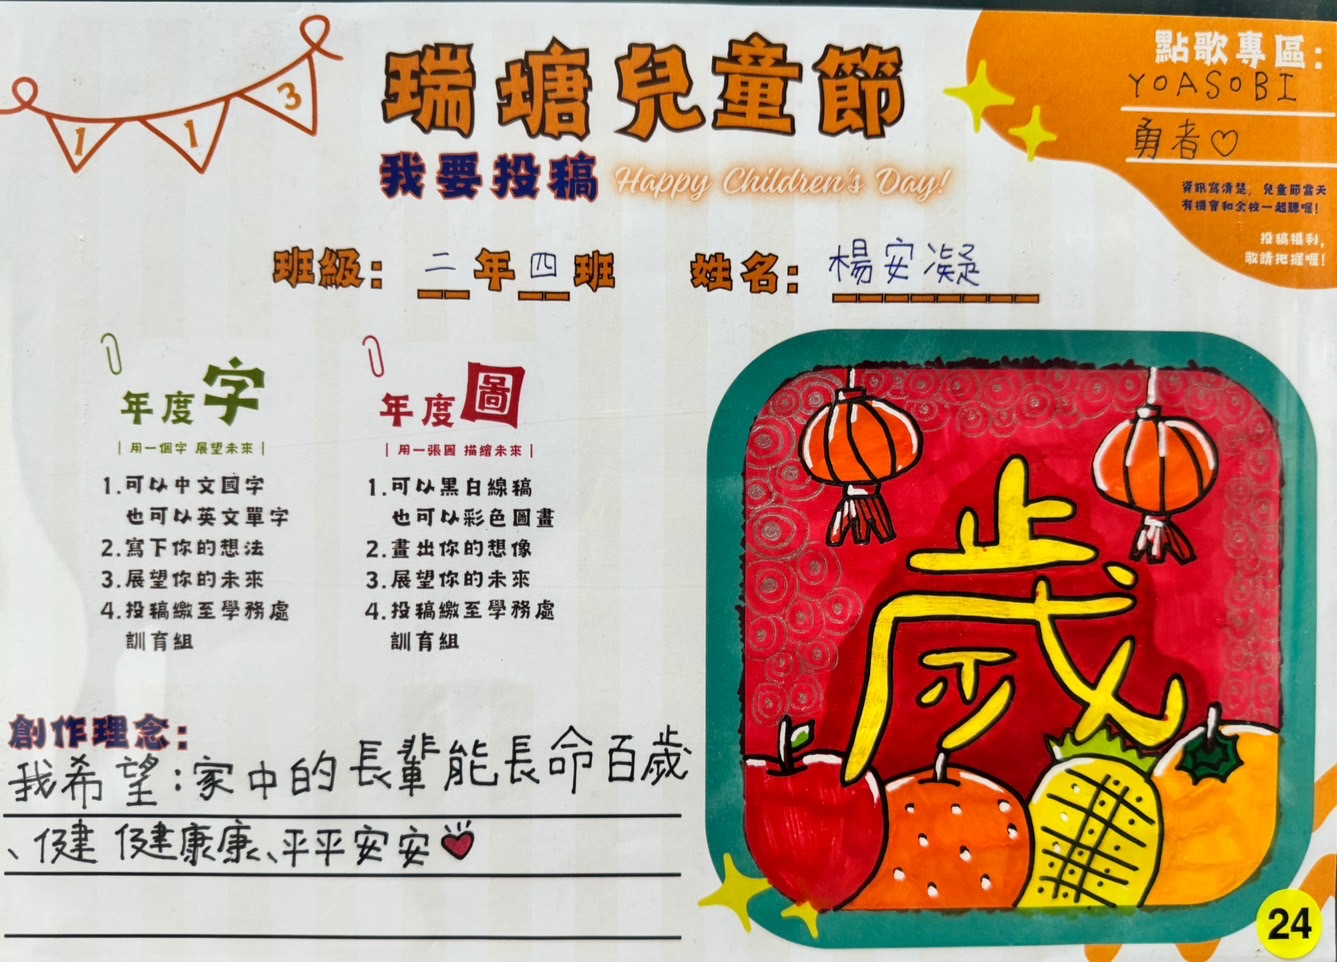 113
瑞塘兒童節
我要投稿 Happy Children's Day!
點歌專區:
YOASOBI
勇者♡
資訊寫清楚,兒童節當天
有機會和全校一起聽喔!
投稿福利,
敬請把握喔!
班級: 二年四班 姓名: 楊安凝
年度字
|用一個字 展望未來|
1.可以中文國字
也可以英文單字
2.寫下你的想法
3.展望你的未來
4.投稿繳至學務處
訓育組
年度圖
|用一張圖 描繪未來|
1.可以黑白線稿
也可以彩色圖畫
2.畫出你的想像
3.展望你的未來
4.投稿繳至學務處
訓育組
歲
創作理念:
我希望:家中的長輩能長命百歲
、健健康康、平平安安
24